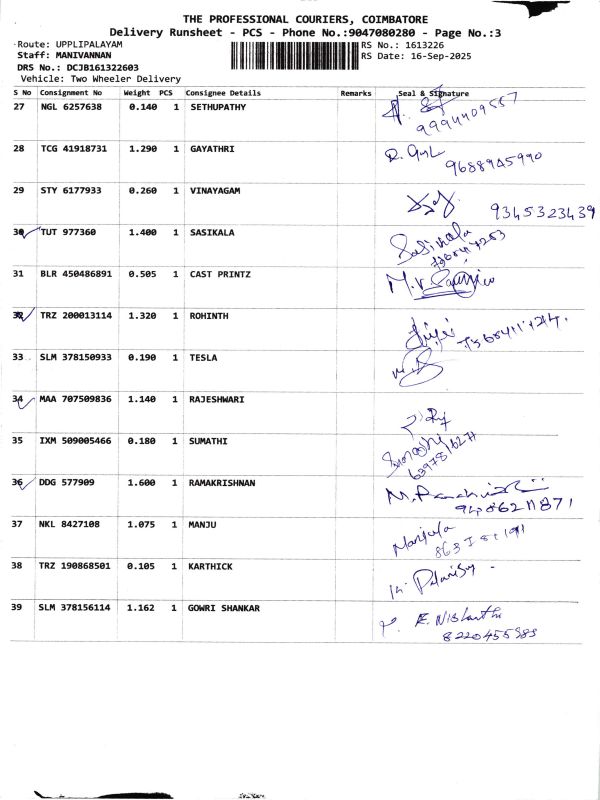 THE PROFESSIONAL COURIERS, COIMBATORE
Delivery Runsheet - PCS - Phone No.:9047080280 - Page No.:3
Route: UPPLIPALAYAM RS No.: 1613226
Staff: MANIVANNAN RS Date: 16-Sep-2025
DRS No.: DCJB161322603
Vehicle: Two Wheeler Delivery
S No Consignment No Weight PCS Consignee Details Remarks Seal & Signature
27 NGL 6257638 0.140 1 SETHUPATHY
28 TCG 41918731 1.290 1 GAYATHRI
9688945990
29 STY 6177933 0.260 1 VINAYAGAM
9345323439
30 TUT 977360 1.400 1 SASIKALA Sasikala
31 BLR 450486891 0.505 1 CAST PRINTZ
32 TRZ 200013114 1.320 1 ROHINTH
33 SLM 378150933 0.190 1 TESLA
34 MAA 707509836 1.140 1 RAJESHWARI
35 IXM 509005466 0.180 1 SUMATHI
36 DDG 577909 1.600 1 RAMAKRISHNAN
37 NKL 8427108 1.075 1 MANJU Manjula
38 TRZ 190868501 0.105 1 KARTHICK
39 SLM 378156114 1.162 1 GOWRI SHANKAR